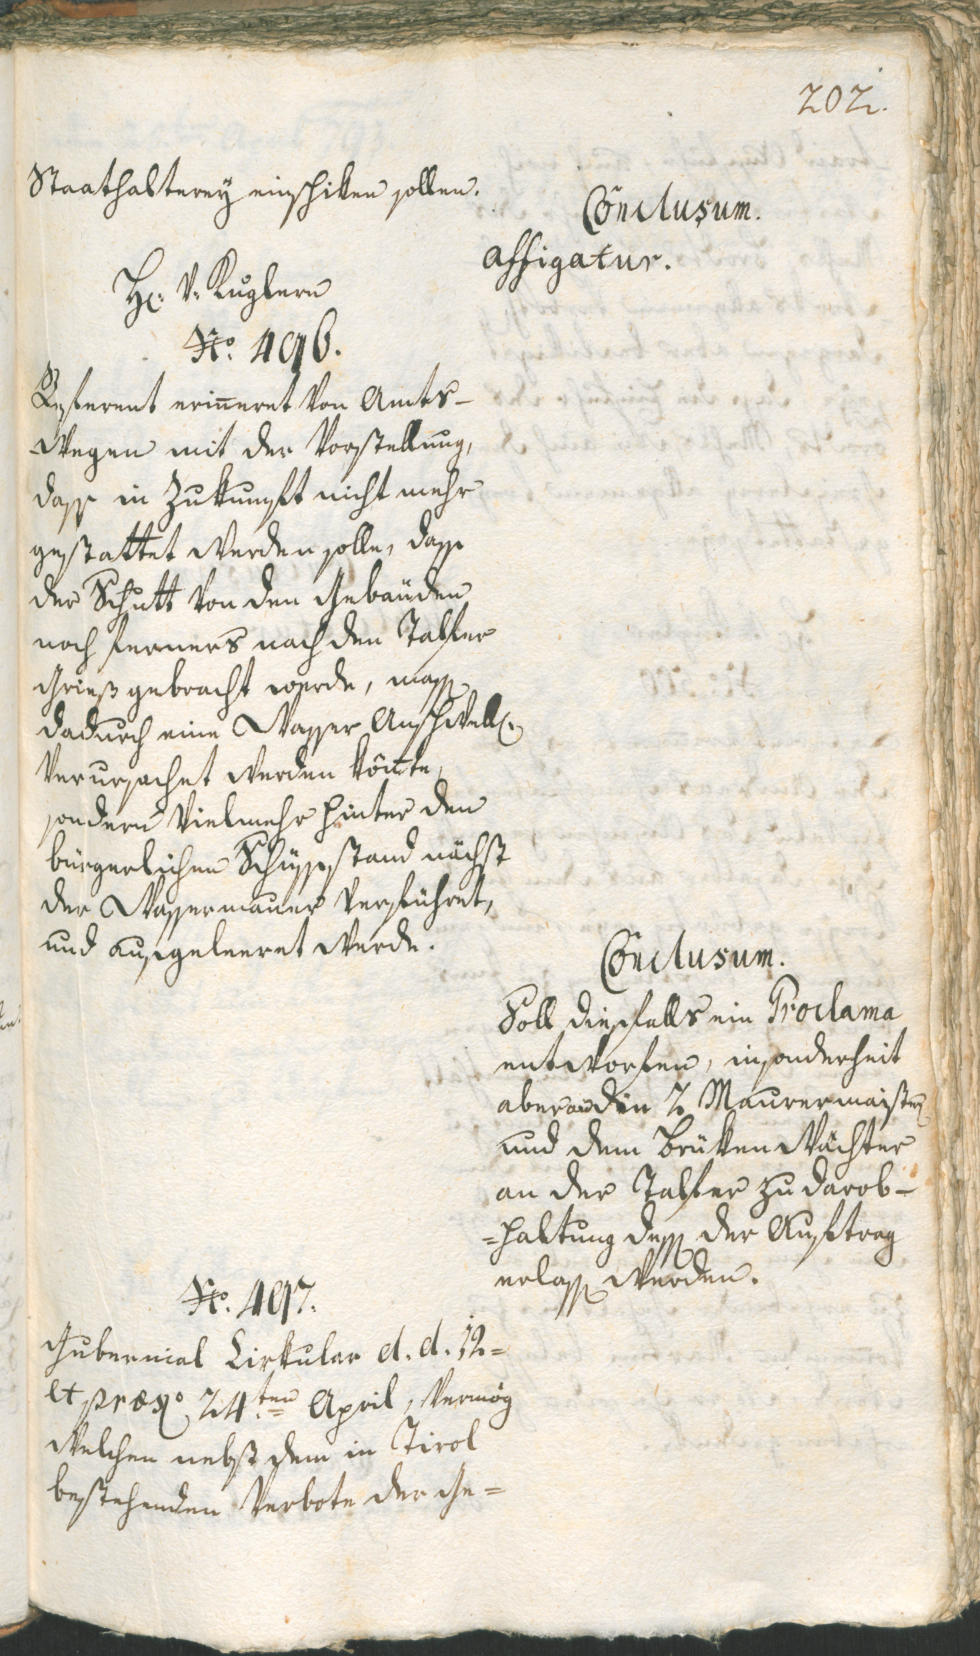 202.
Staathalterey einschiken sollen.
Conclusum.
affigatur.
H: v. Kuglern
No. 496.
Referent erinneret von Amts-
wegen mit der Vorstellung,
dass in Zukunft nicht mehr
gestattet werden solle, dass
der Schutt von den Gebäuden
noch ferners nach den Talfer
Grieß gebracht werde, mass
dadurch eine Wasser Anschwell:
verursachet werden könte,
sondern vielmehr hinter den
bürgerlichen Schüssstand nächst
der Wassermauer verführet,
und ausgeleeret werde.
Conclusum.
Soll diesfalls ein Proclama
entworfen, insonderheit
aber den 2 Maurermaister
und dem Brükenwächter
an der Talfer zu darob-
=haltung dess der Auftrag
erlass werden.
No. 497.
Gubernial Cirkular d. d. 12=
et præs: 24ten April, vermög
welchen nebst dem in Tirol
bestehenden Verbote der Ge=